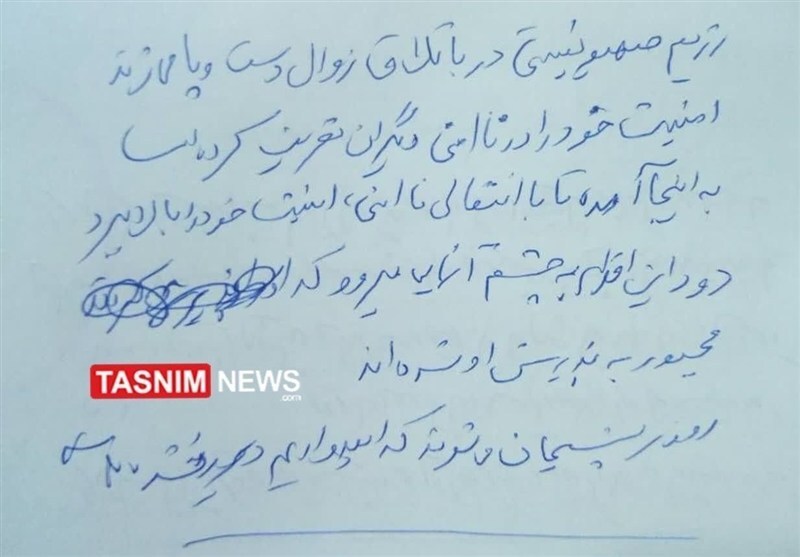 رژیم صهیونیستی در باتلاق زوال دست و پا می‌زند
امنیت خود را در ناامنی دیگران تعریف کرده است
به اینجا آمده تا با انتقال ناامنی، امنیت خود را بالا ببرد
دود این اقدام به چشم آنهایی می‌رود که
مجبور به پذیرش او شده‌اند
TASNIM NEWS
.com
روزی پشیمان می‌شوند که امیدواریم دیر نشده باشد